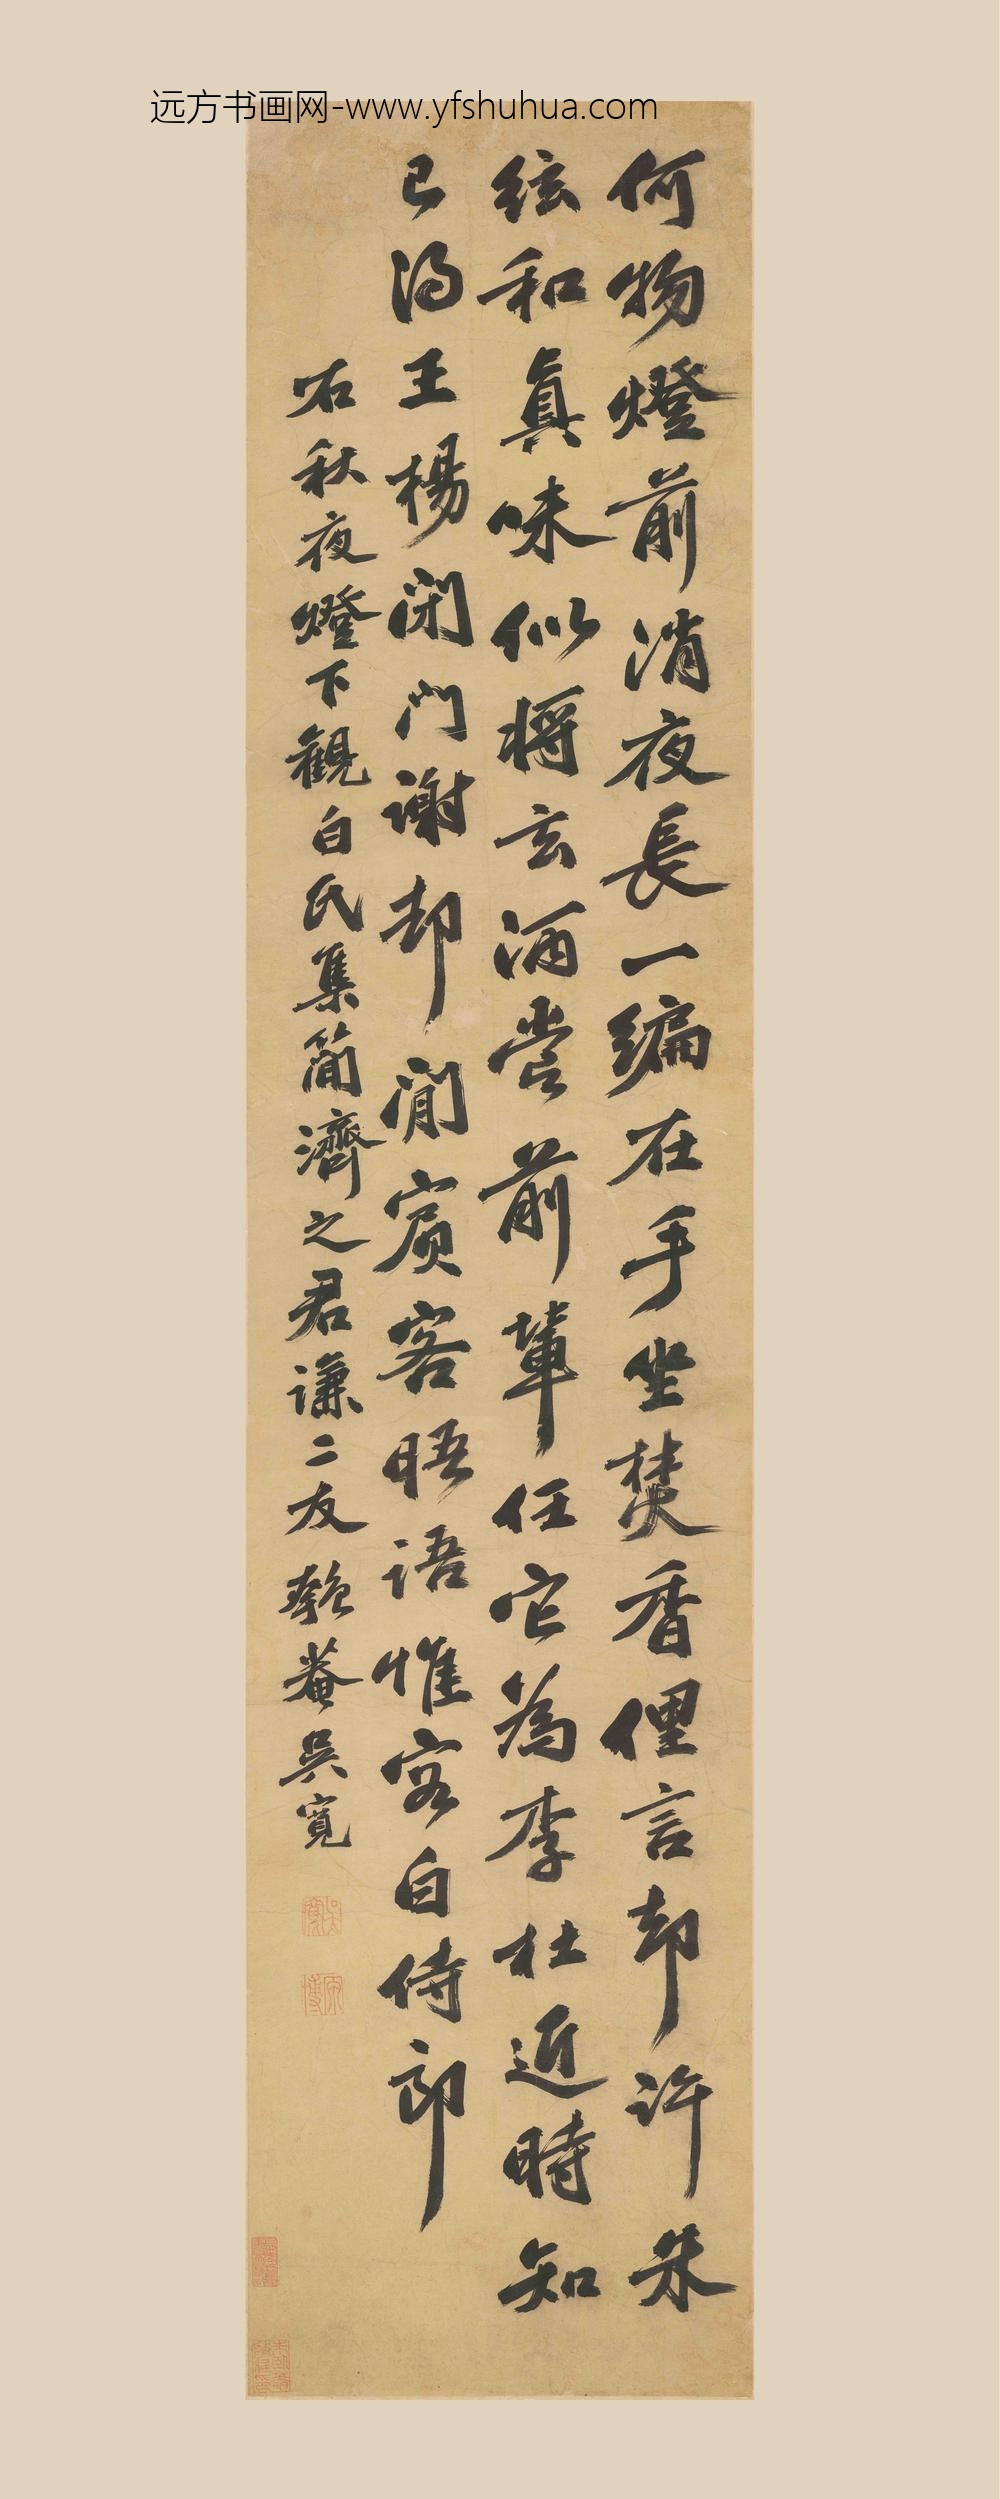 远方书画网-www.yfshuhua.com
何物燈前消夜長一編在手坐焚香俚言却許朱
絃和真味似將玄酒嘗前輩任它為李杜近時知
已得王楊閉門謝却閒賓客晤語惟容白侍郎
右秋夜燈下觀白氏集簡濟之君謙二友匏菴吳寬